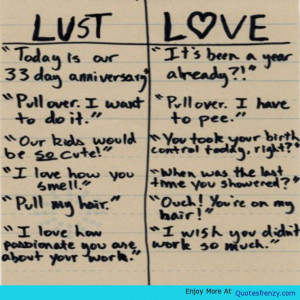 LUST
"Today is our
33 day anniversary"
"Pull over. I want
to do it."
"Our kids would
be so cute!"
"I love how you
smell."
"Pull my hair."
"I love how
passionate you are
about your work."
LOVE
"It's been a year
already?!"
"Pull over. I have
to pee."
"You took your birth
control today, right?"
"When was the last
time you showered?"
"Ouch! You're on my
hair!"
"I wish you didn't
work so much."
Enjoy More At Quotesfrenzy.com